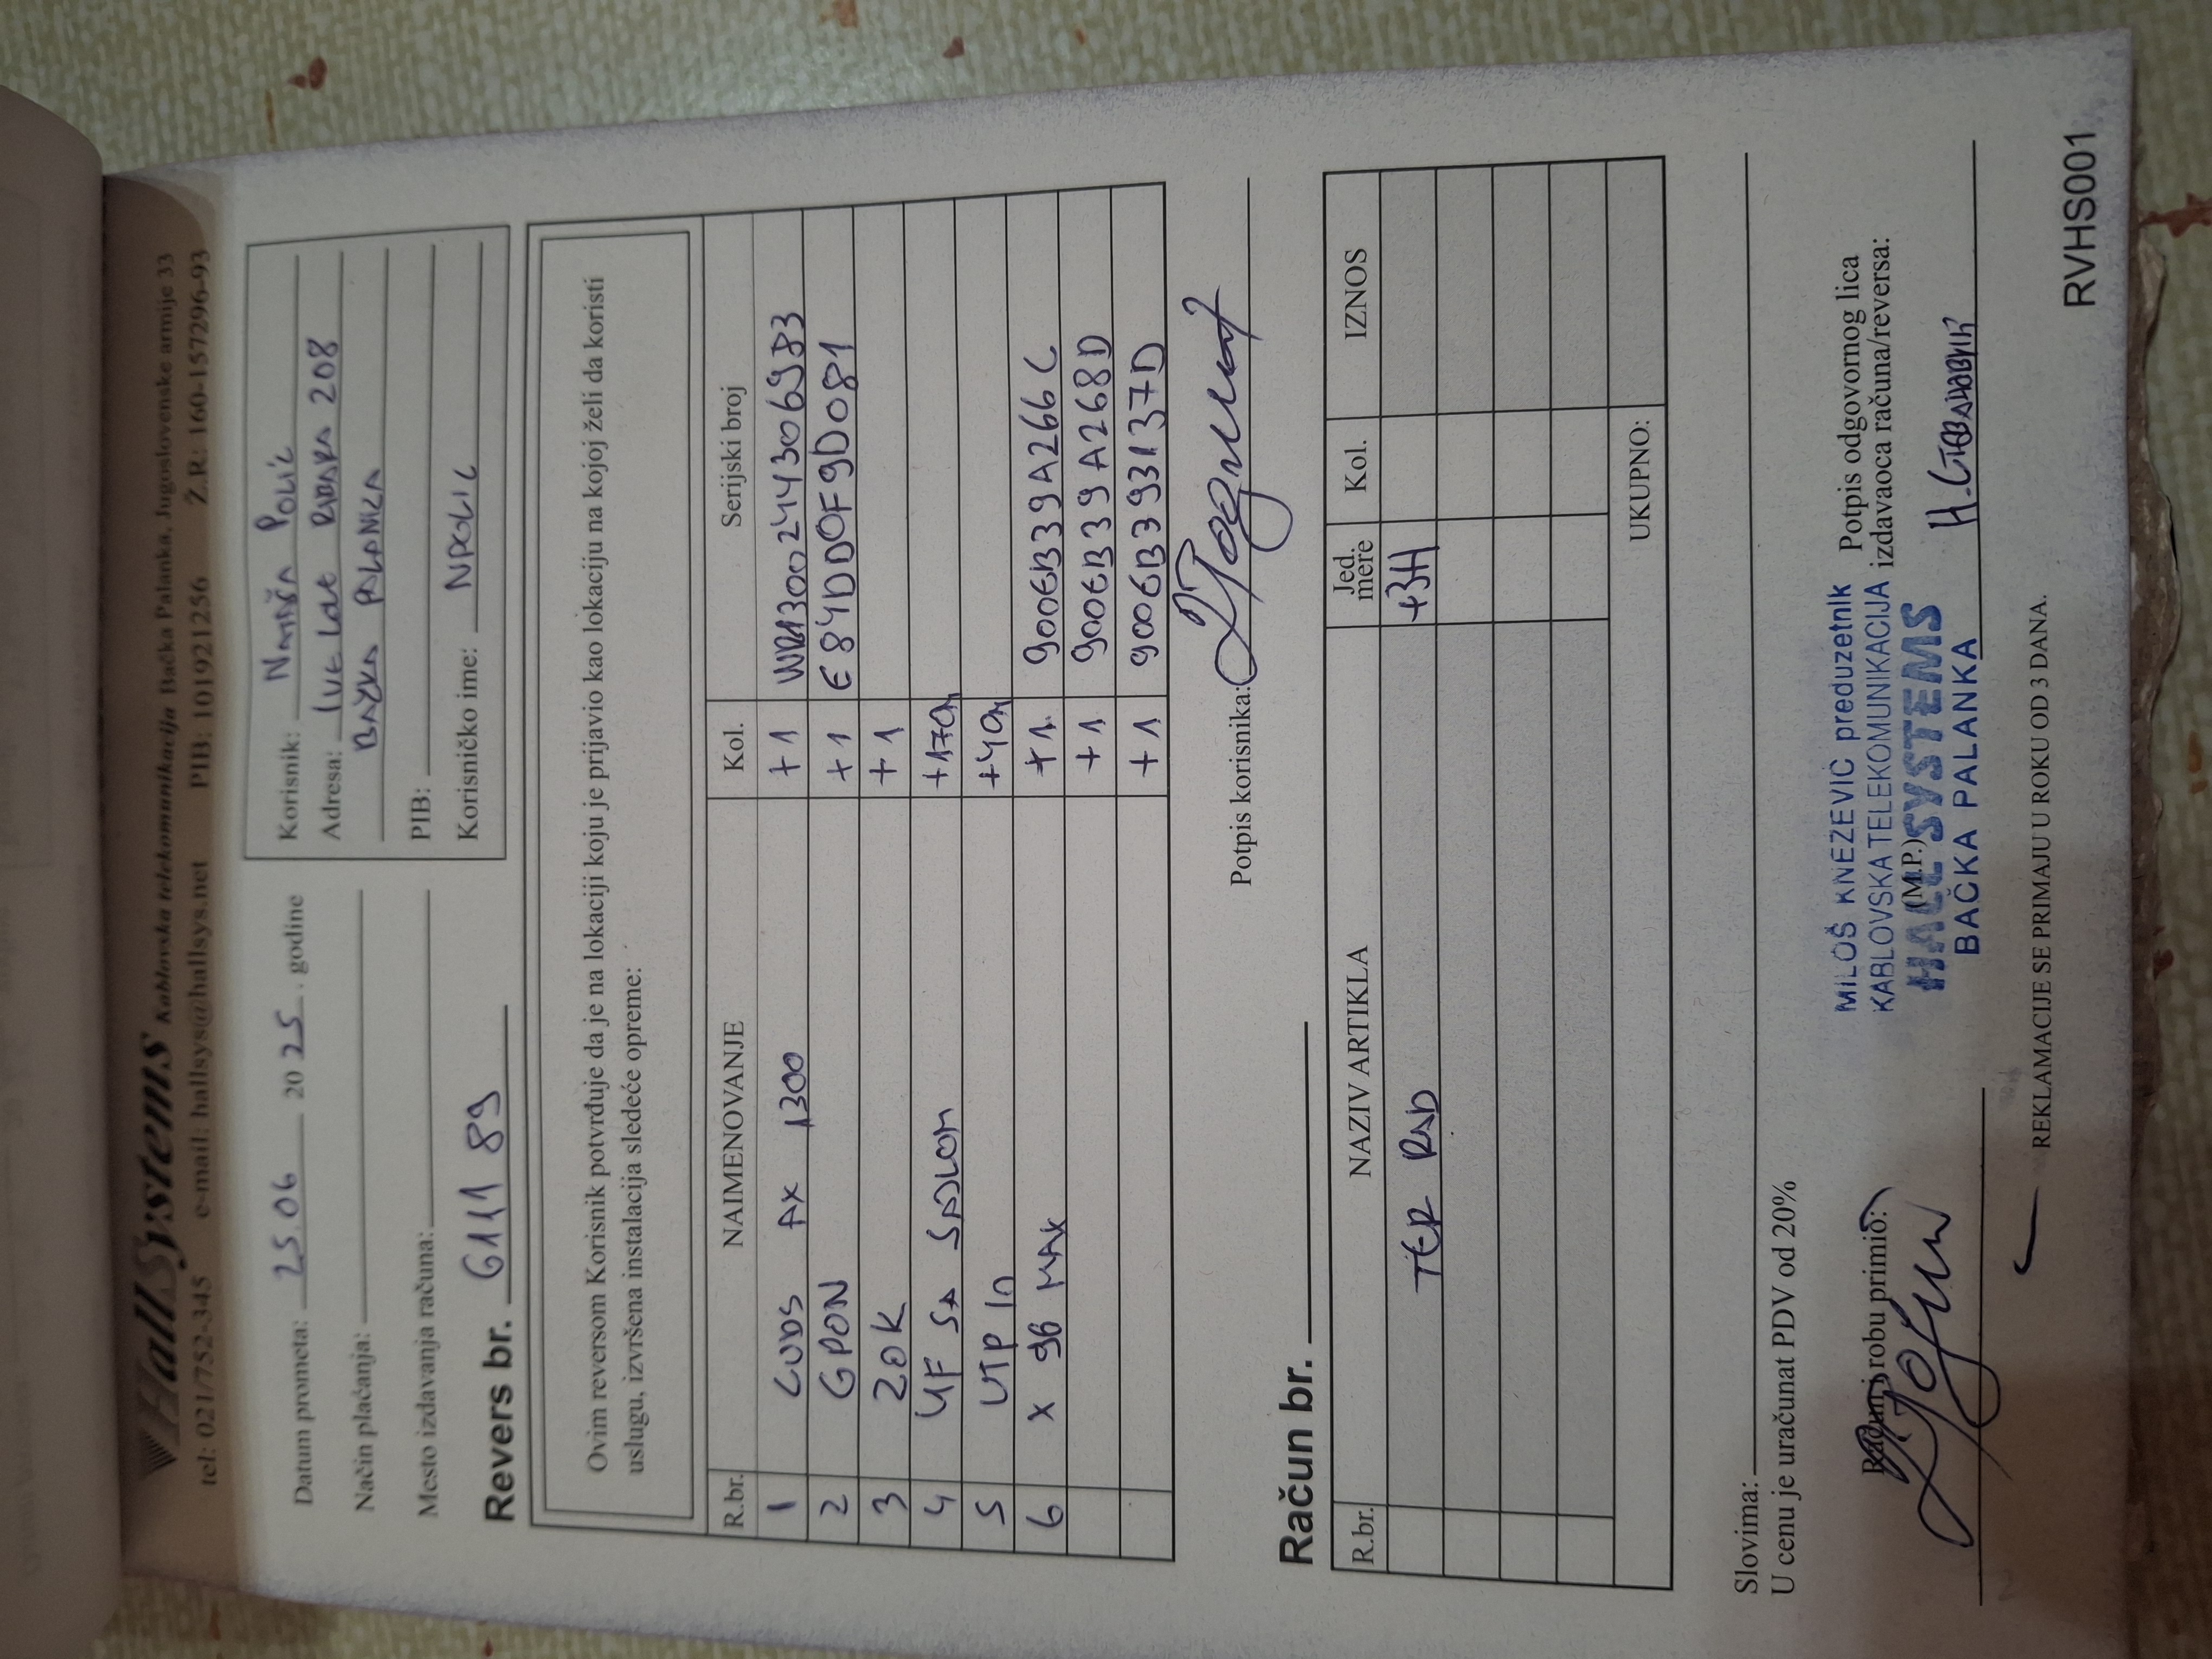 HallSystems Kablovska telekomunikacija Bačka Palanka, Jugoslovenske armije 33
tel: 021/752-345 e-mail: hallsys@hallsys.net PIB: 101921256 Ž.R.: 160-157296-93
Datum prometa: 25.06 2025. godine
Način plaćanja:
Mesto izdavanja računa:
Revers br. G111 89
Korisnik: NATAŠA POLIĆ
Adresa: IVE LOLE RIBARA 208
BAČKA PALANKA
PIB:
Korisničko ime: NPOLIC
Ovim reversom Korisnik potvrđuje da je na lokaciji koju je prijavio kao lokaciju na kojoj želi da koristi
uslugu, izvršena instalacija sledeće opreme:
R.br. NAIMENOVANJE Kol. Serijski broj
1 CUDS AX 1300 +1 WR13002443069 83
2 GPON +1 E84DD0F9D081
3 ZOK +1
4 UF SA SAJLOM +170m
5 UTP In +40m
6 X 96 MAX +1 900EB39A266C
+1 900EB39A268D
+1 900EB393137D
Potpis korisnika:
Račun br.
R.br. NAZIV ARTIKLA Jed. mere Kol. IZNOS
TER RAD +3H
UKUPNO:
Slovima:
U cenu je uračunat PDV od 20%
Račun i robu primio:
(M.P.)
MILOŠ KNEZEVIĆ preduzetnik
KABLOVSKA TELEKOMUNIKACIJA
HALL SYSTEMS
BAČKA PALANKA
Potpis odgovornog lica
izdavaoca računa/reversa:
REKLAMACIJE SE PRIMAJU U ROKU OD 3 DANA.
RVHS001